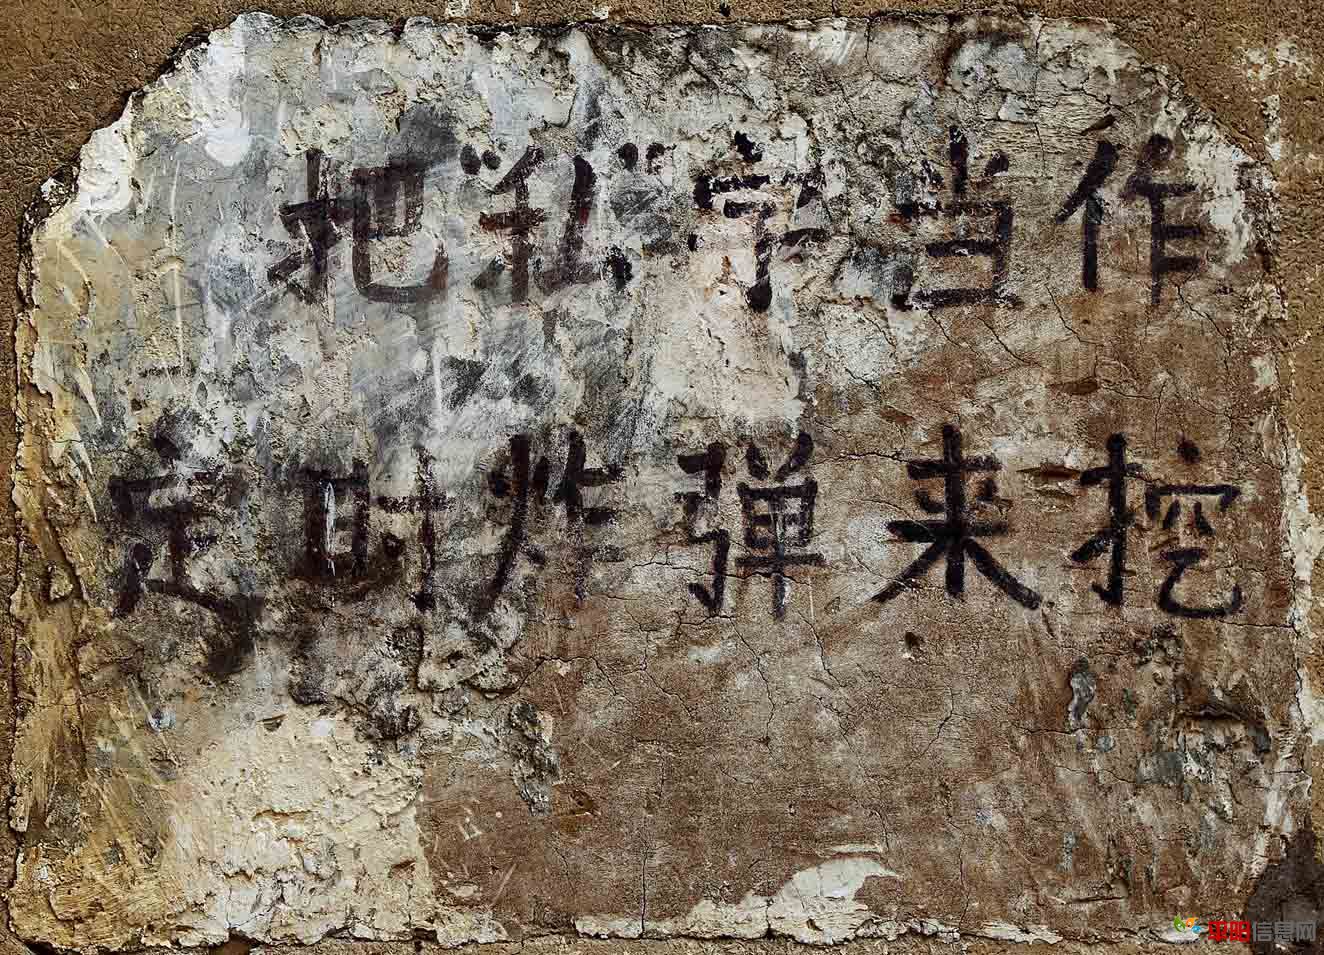 把“私”字当作
定时炸弹来挖
平阳信息网